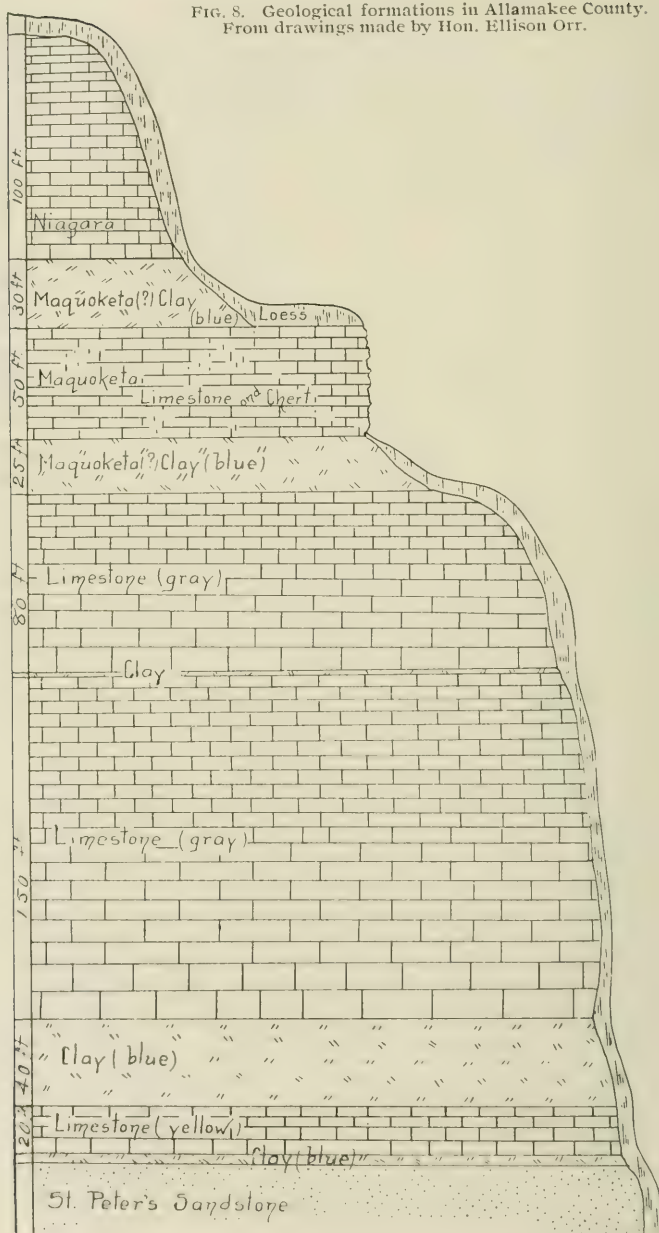 FIG. 8. Geological formations in Allamakee County.
From drawings made by Hon. Ellison Orr.
100 ft.
Niagara
30 ft
Maquoketa(?) Clay
(blue)
Loess
50 ft.
Maquoketa
Limestone and Chert
25 ft
Maquoketa(?) Clay (blue)
80 ft
Limestone (gray)
Clay
150 ft
Limestone (gray)
40 ft
Clay (blue)
20
Limestone (yellow)
Clay (blue)
St. Peter's Sandstone